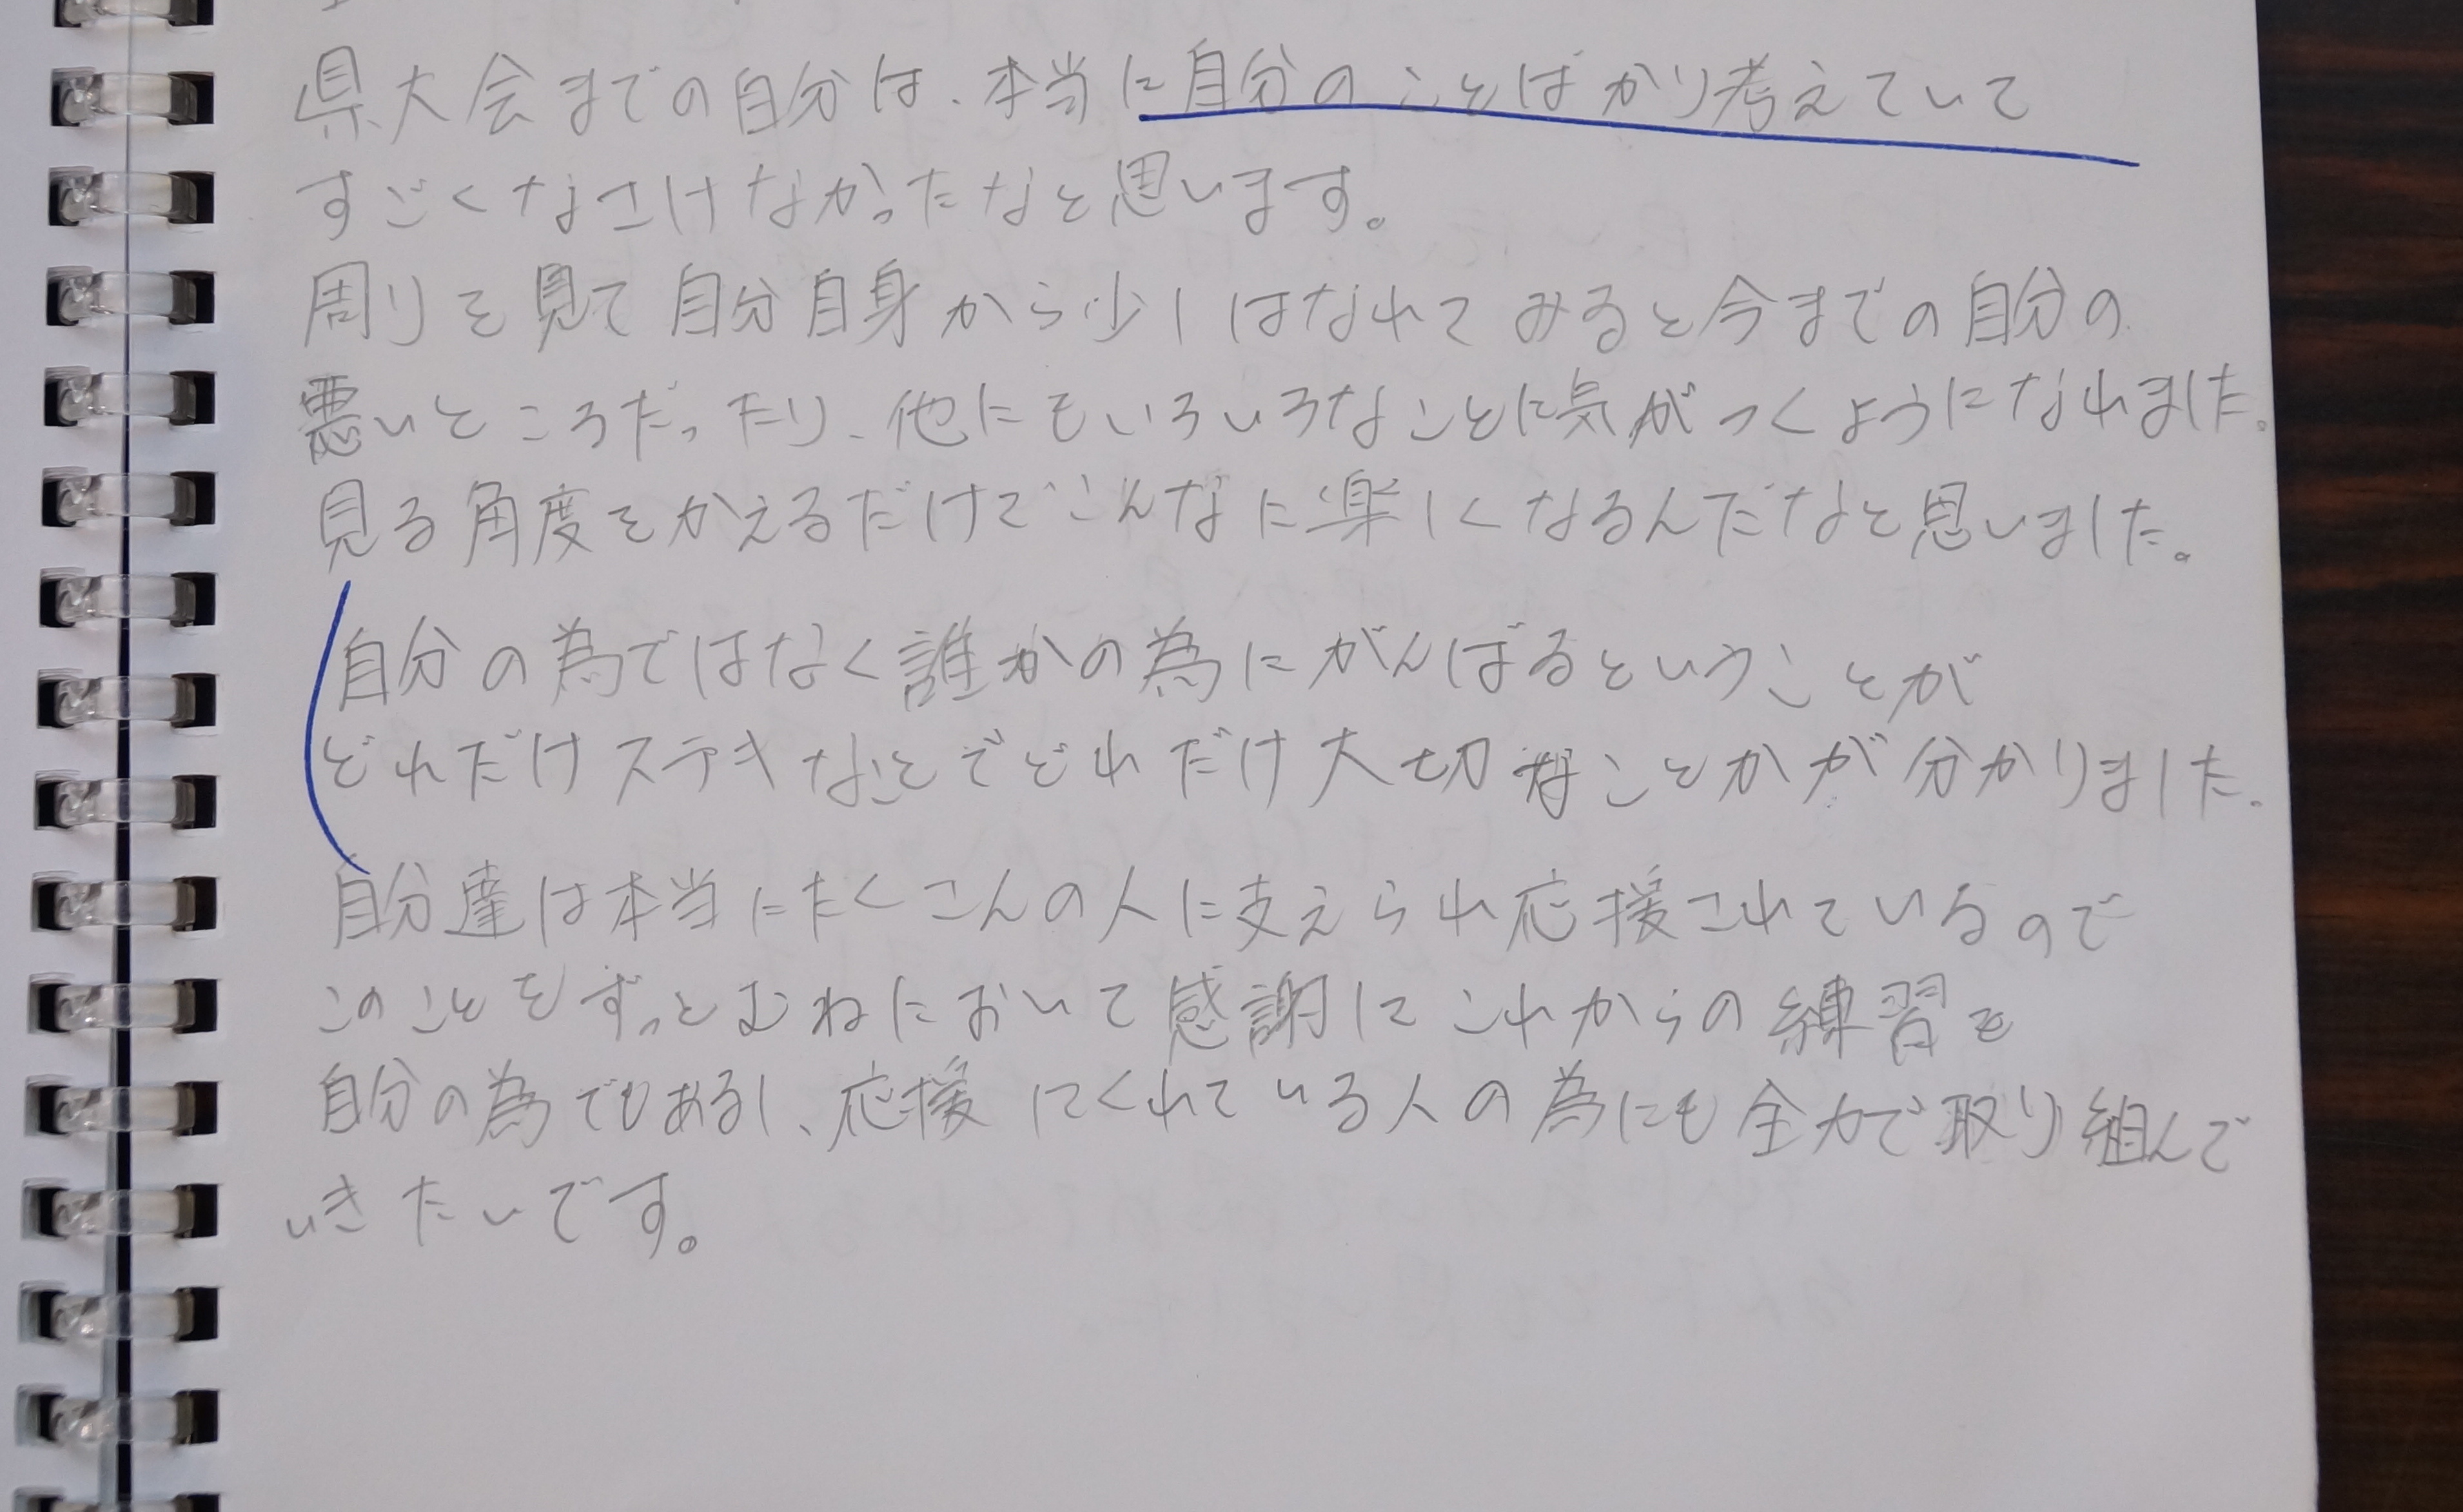 県大会までの自分は、本当に自分のことばかり考えていて
すごくなさけなかったなと思います。
周りを見て自分自身から少しはなれてみると今までの自分の
悪いところだったり、他にもいろいろなことに気がつくようになれました。
見る角度をかえるだけでこんなに楽しくなるんだなと思いました。
自分の為ではなく誰かの為にがんばるということが
どれだけステキなことでどれだけ大切なことかが分かりました。
自分達は本当にたくさんの人に支えられ応援されているので
このことをずっとむねにおいて感謝してこれからの練習を
自分の為でもあるし、応援してくれている人の為にも全力で取り組んで
いきたいです。